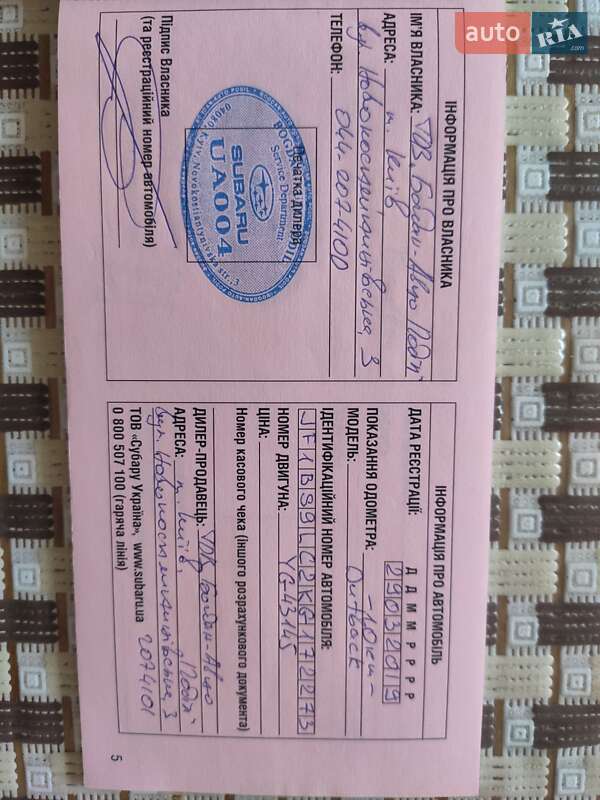 auto RIA.com
ІНФОРМАЦІЯ ПРО ВЛАСНИКА
ІМ'Я ВЛАСНИКА: ТДВ Богдан-Авто Поділ
АДРЕСА: м. Київ
вул Новокостянтинівська, 3
ТЕЛЕФОН: 044-2074100
Печатка дилера
SUBARU
UA004
Service Department
Kyiv, Novokostiantynivska str., 3
Підпис Власника
(та реєстраційний номер автомобіля)
ІНФОРМАЦІЯ ПРО АВТОМОБІЛЬ
Д Д М М Р Р Р Р
ДАТА РЕЄСТРАЦІЇ: 29032019
ПОКАЗАННЯ ОДОМЕТРА: -10км-
МОДЕЛЬ: Outback
ІДЕНТИФІКАЦІЙНИЙ НОМЕР АВТОМОБІЛЯ:
JF1BS9LC2KG172273
НОМЕР ДВИГУНА: YG43145
ЦІНА:
Номер касового чека (іншого розрахункового документа)
ДИЛЕР-ПРОДАВЕЦЬ: ТДВ Богдан-Авто Поділ
АДРЕСА: м. Київ,
вул. Новокостянтинівська, 3
2074101
ТОВ «Субару Україна», www.subaru.ua
0 800 507 100 (гаряча лінія)
5